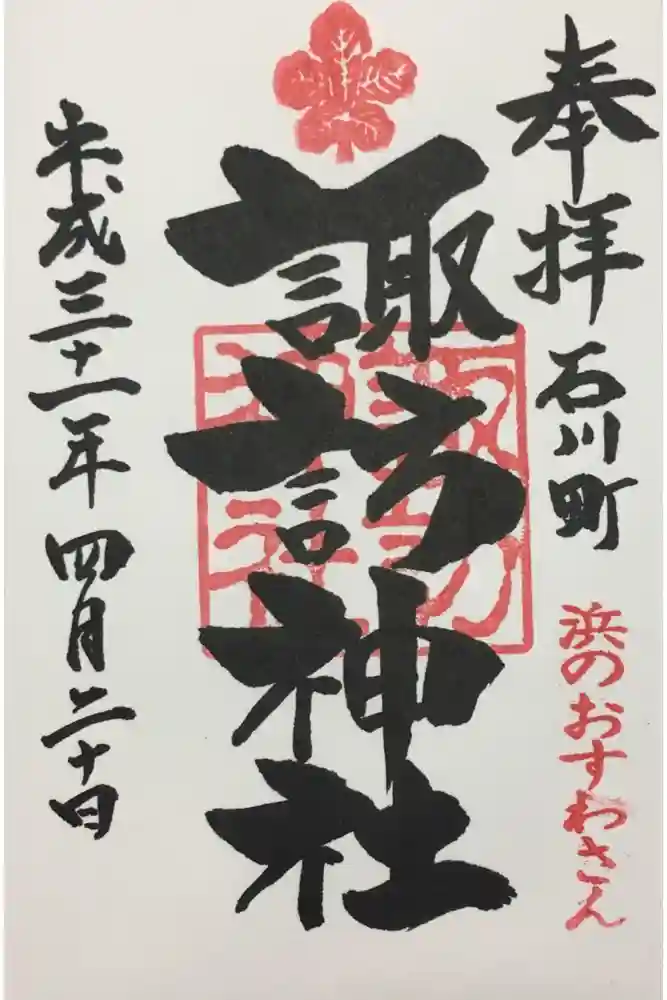 奉拝 石川町
浜のおすわさん
諏訪神社
諏訪神社
平成三十一年 四月二十日